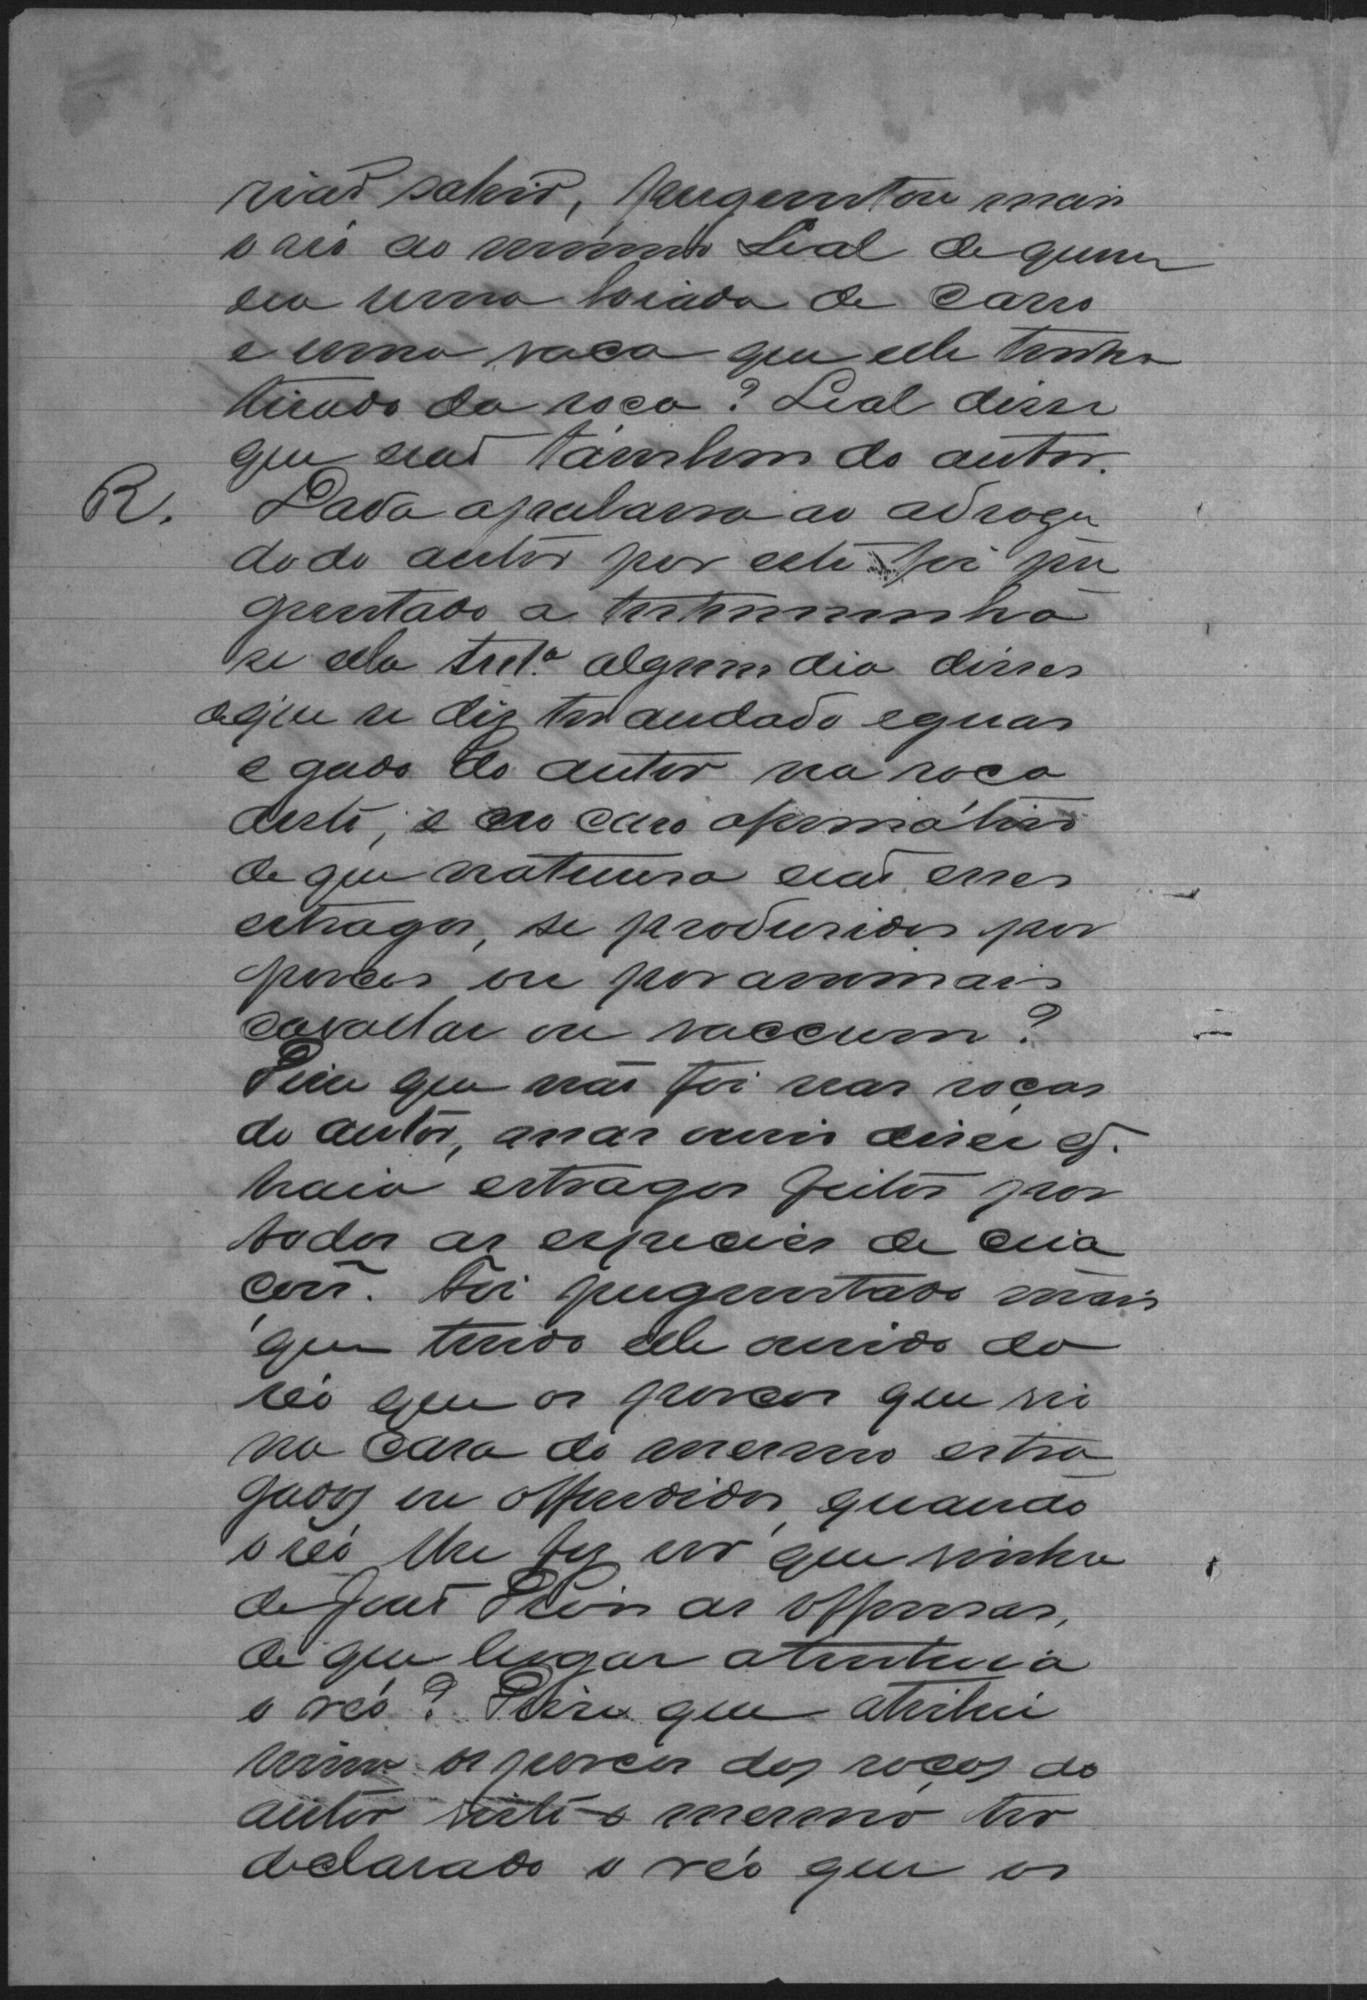 não sahir, perguntou mais
o réo ao mesmo Leal de quem
era uma boiada de carro
e uma vacca que elle tinha
tirado da roça? Leal disse
que erão também do autor.
R. Dada a palavra ao advoga
do do autor por este foi per
guntado a testemunha
se ella test.ª algum dia disses
de que se diz ter andado eguas
e gado do autor na roça
deste, e no caso afirmativo
de que naturesa erão esses
estragos, se produsidos por
porcos ou por animais
cavallar ou vaccum?
Disse que não foi nas roças
do autor, mas ouvio diser q.
havia estragos feitos por
todas as especies de cria
ções. Foi perguntado mais
que tendo elle ouvido do
réo que os porcos que vio
na casa do mesmo estra
gados ou offendidos, quando
o réo lhe fez ver que vinha
de João Pires as offensas,
de que lugar
o réo? Disse que attribui
os porcos das roças do
autor visto o mesmo ter
declarado o réo que os